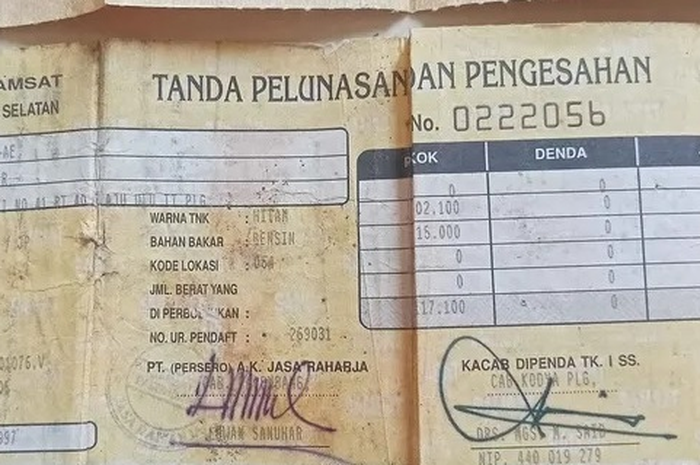 AMSAT
SELATAN
TANDA PELUNASAN DAN PENGESAHAN
No. 0222056
KOK DENDA
0 0
02,100 0
15.000 0
0 0
0 0
17.100 0
WARNA TNK : HITAM
BAHAN BAKAR : BENSIN
KODE LOKASI : 054
JML. BERAT YANG
DI PERBOLEHKAN :
NO. UR. PENDAFT : 269031
PT. (PERSERO) A.K. JASA RAHARJA
KACAB DIPENDA TK. I SS.
CAB KODYA PLG,
SANUHAR
DRS. NGS. M. SAID
NIP. 440 019 279
01076.V
997